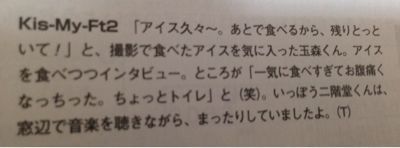 Kis-My-Ft2 「アイス久々~。あとで食べるから、残りとっと
いて!」と、撮影で食べたアイスを気に入った玉森くん。アイス
を食べつつインタビュー。ところが「一気に食べすぎてお腹痛く
なっちった。ちょっとトイレ」と(笑)。いっぽう二階堂くんは、
窓辺で音楽を聴きながら、まったりしていましたよ。(T)